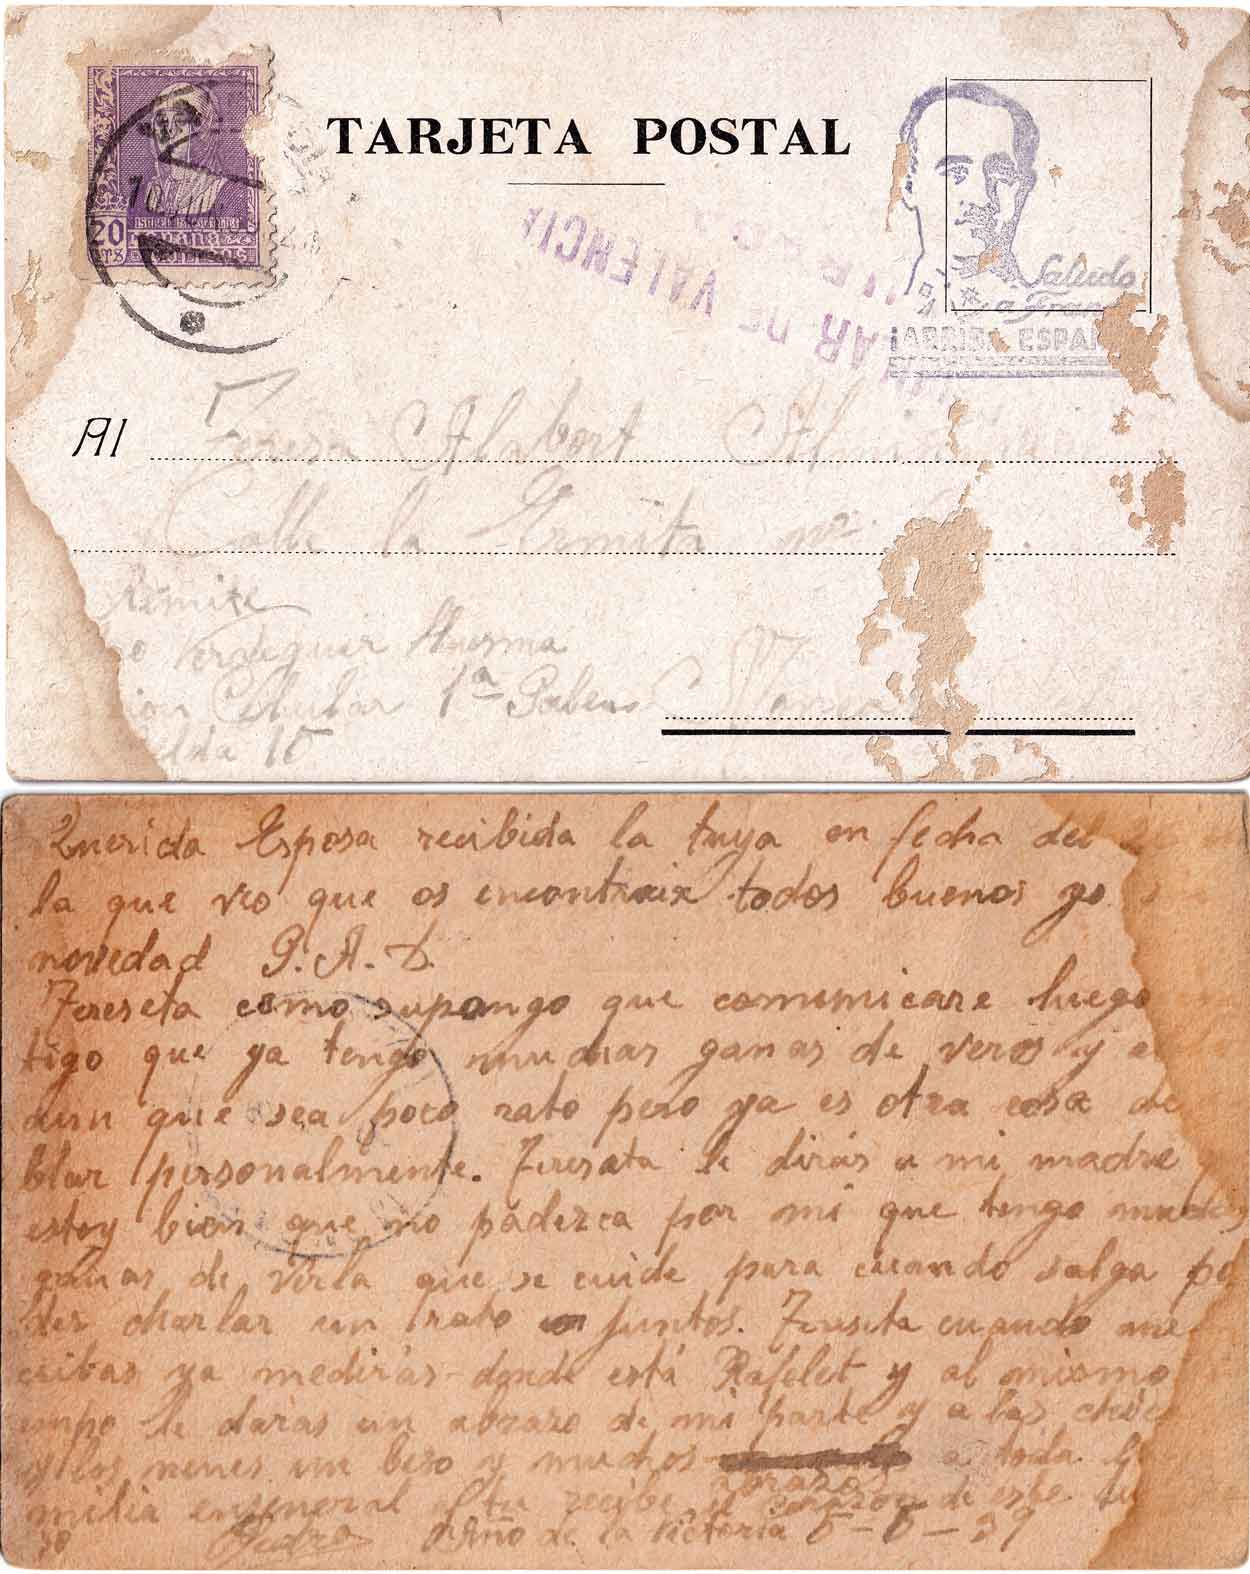 TARJETA POSTAL
20
CTS
ESPAÑA
CORREOS
AR DE VALENCIA
Saludo
a Fran
¡ARRIB ESPAÑ
Al
Teresa Alabort
Calle la Ermita nº
Remite
Verdeguer Huesma
Celular 1ª Galeria
15
Querida Esposa recibida la tuya en fecha del
la que veo que os encontraix todos buenos yo
novedad G. A. D.
Tereseta como supongo que comunicare luego
tigo que ya tengo muchas ganas de veros y a
aun que sea poco rato pero ya es otra cosa de
blar personalmente. Teresata le dirás a mi madre
estoy bien que no padezca por mi que tengo muchas
ganas de verla que se cuide para cuando salga po
der charlar un rato juntos. Tereseta cuando me
cribas ya medirás donde está Rafelet y al mismo
empo le darás un abrazo de mi parte y a las
y los nenes un beso y muchos a toda
abrazos
milia engeneral y tu recibe el corazon de este tu
Pedro Año de la Victoria 39